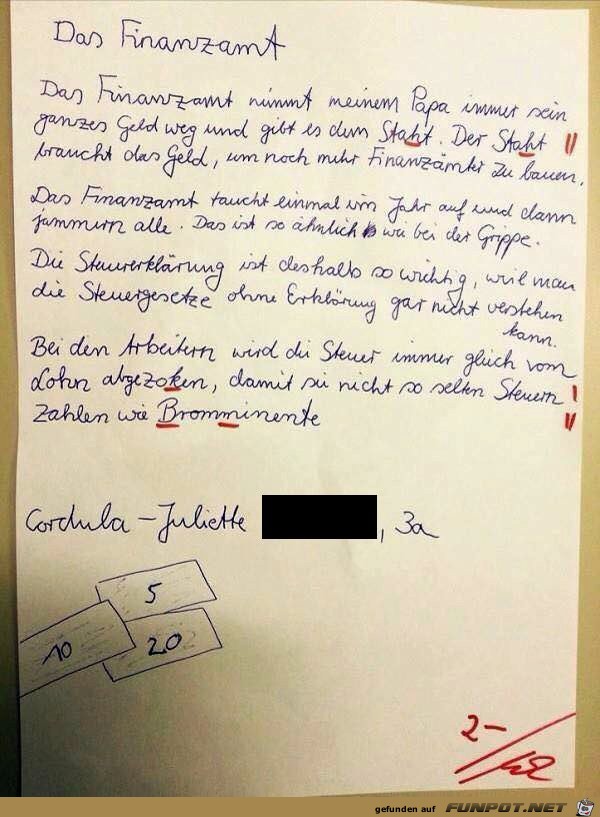 Das Finanzamt
Das Finanzamt nimmt meinem Papa immer sein
ganzes Geld weg und gibt es dem Staht. Der Staht
braucht das Geld, um noch mehr Finanzämter zu bauen.
Das Finanzamt taucht einmal im Jahr auf und dann
jammern alle. Das ist so ähnlich wie bei der Grippe.
Die Steuererklärung ist deshalb so wichtig, weil man
die Steuergesetze ohne Erklärung gar nicht verstehen
kann.
Bei den Arbeitern wird die Steuer immer gleich vom
Lohn abgezoken, damit sie nicht so selten Steuern
zahlen wie Bromminente
Cordula-Juliette , 3a
5
10
20
2-
gefunden auf FUNPOT.NET